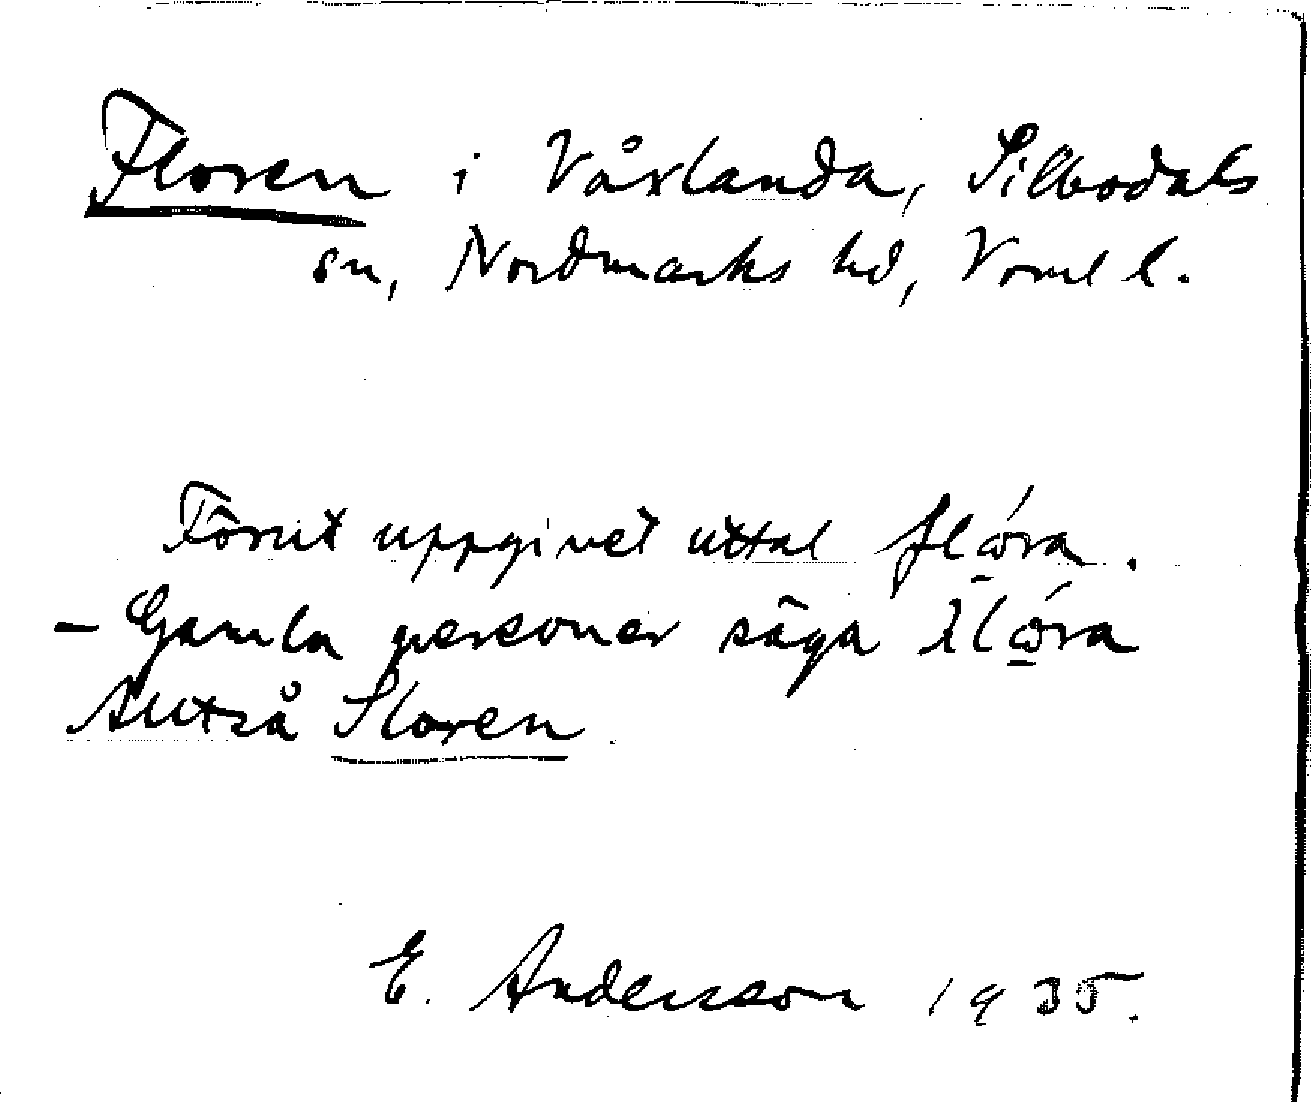 Floren i Vårlanda, Silbodals
sn, Nordmarks hd, Vrml l.
Förut uppgivet uttal flώ̱ra.
– Gamla personer säga λlώ̱ra
Alltså Sloren
E. Andersson 1935.